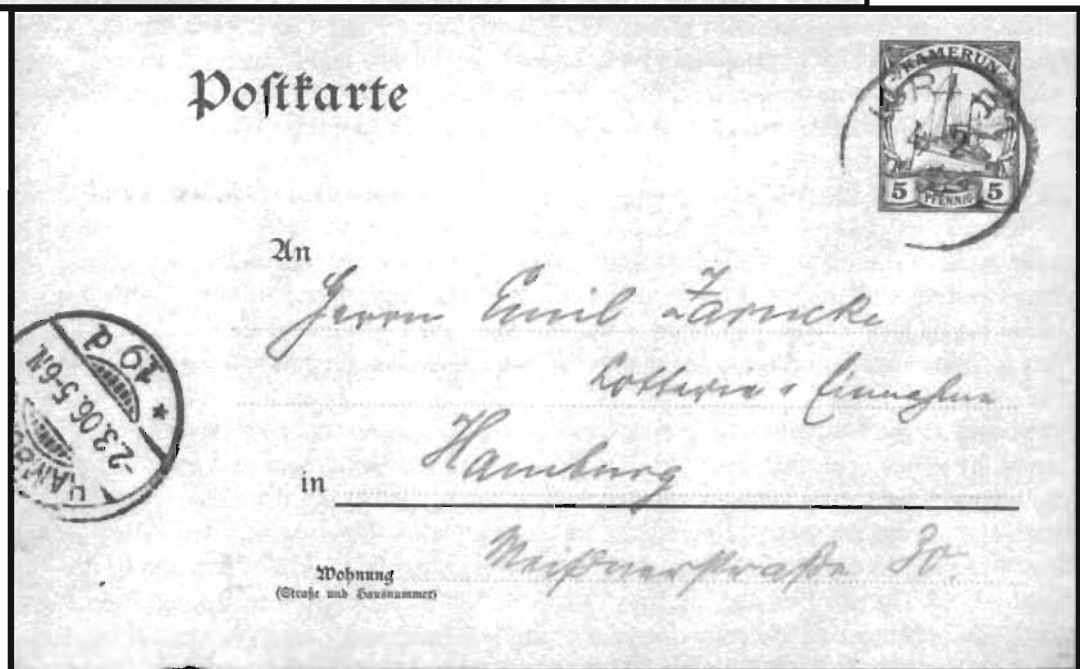 Postkarte
KAMERUN
5 PFENNIG 5
An
Herrn Emil Zarncke
Lotterie-Einnahme
in Hamburg
Wohnung
(Straße und Hausnummer)
Meißnerstraße 30.
HAMBURG
-2.3.06. 5-6 N
* 19 d